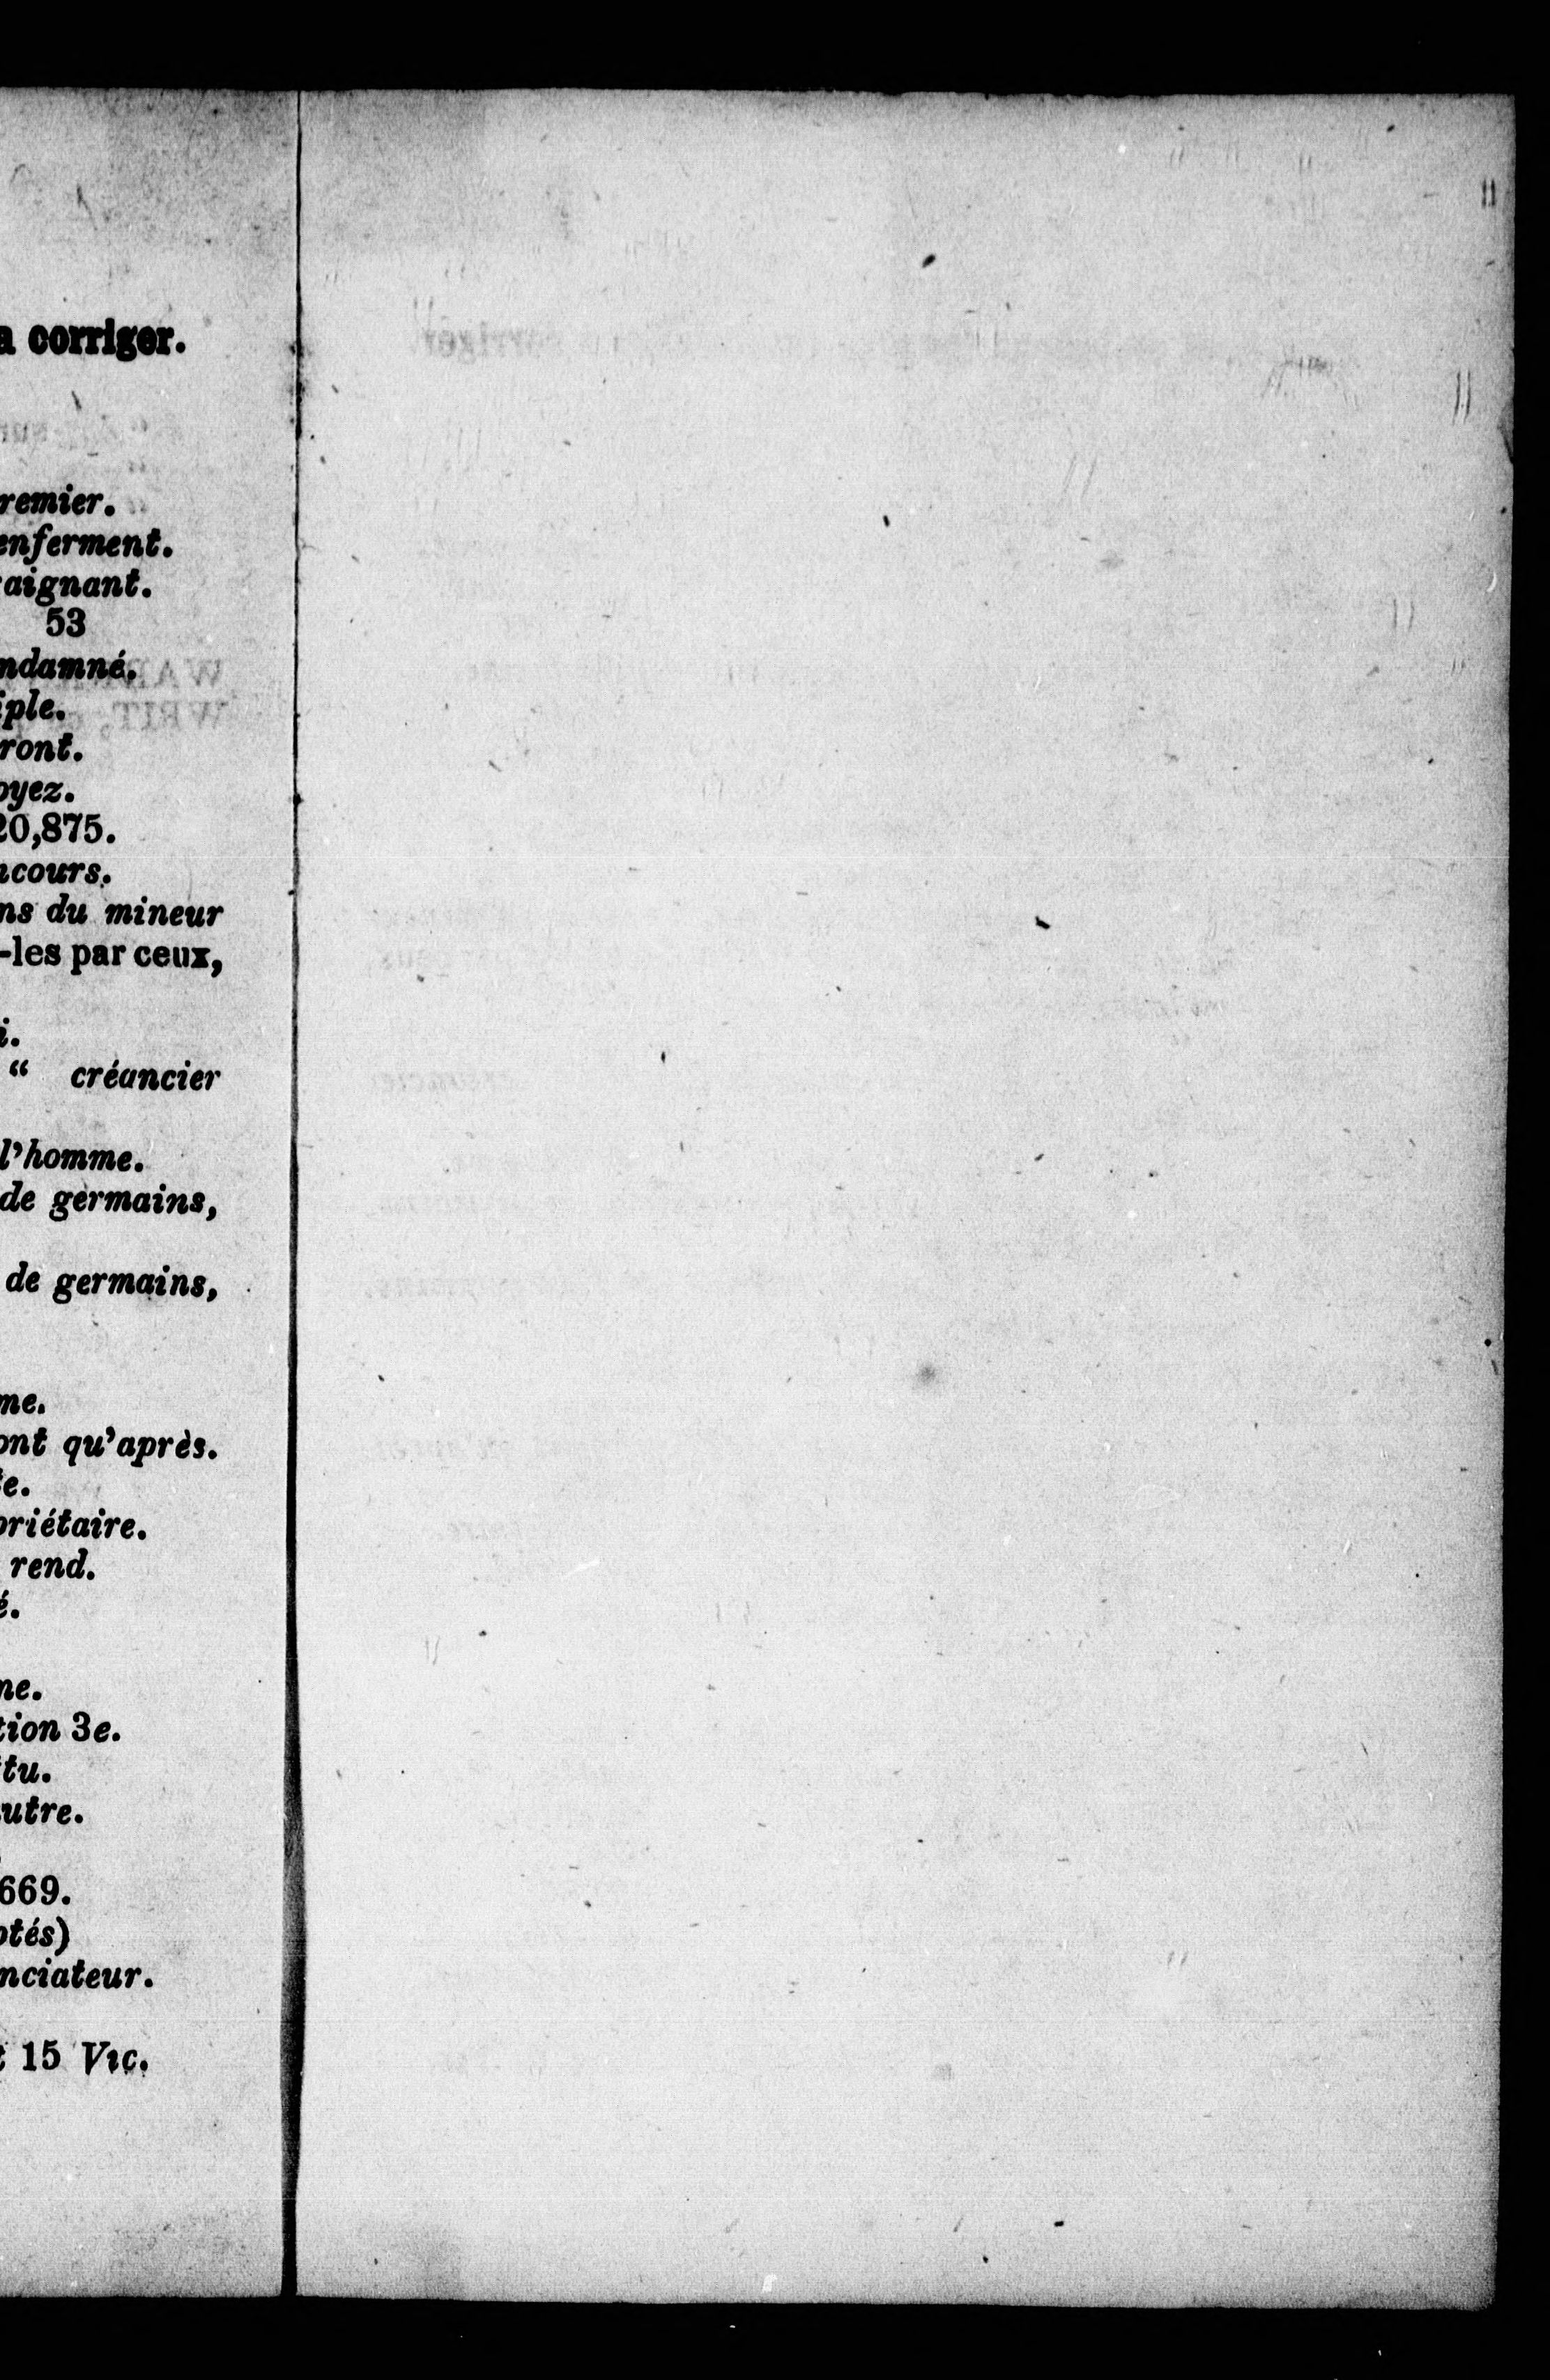 a corriger.
remier.
enferment.
aignant.
53
ndamné.
iple.
ront.
oyez.
20,875.
ncours.
ns du mineur
-les par ceux,
i.
“ créancier
l’homme.
de germains,
de germains,
me.
ont qu’après.
te.
priétaire.
rend.
é.
ne.
tion 3e.
tu.
utre.
669.
otés)
nciateur.
t 15 Vic.